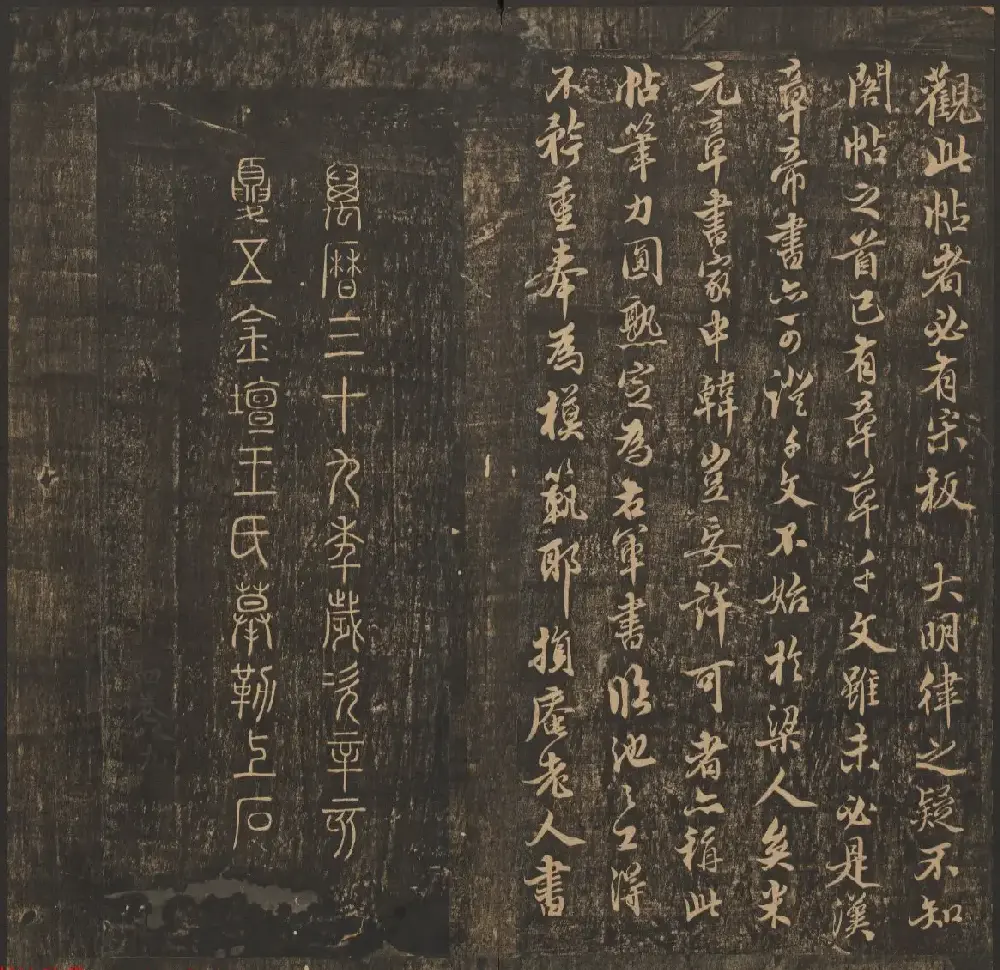 觀此帖者必有宋板大明律之疑不知
閣帖之首已有章草千文雖未必是漢
章帝書亦可證千文不始於梁人矣米
元章書家申韓豈妄許可者亦稱此
帖筆力圓熟定為右軍書臨池之工得
不矜重奉為模範耶損庵老人書
萬曆三十九年歲次辛亥
夏五金壇王氏摹勒上石